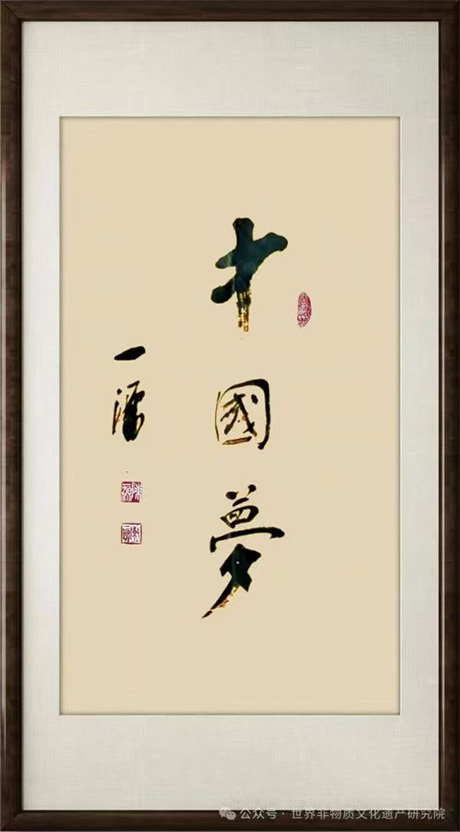 中國夢
一
公众号 · 世界非物质文化遗产研究院